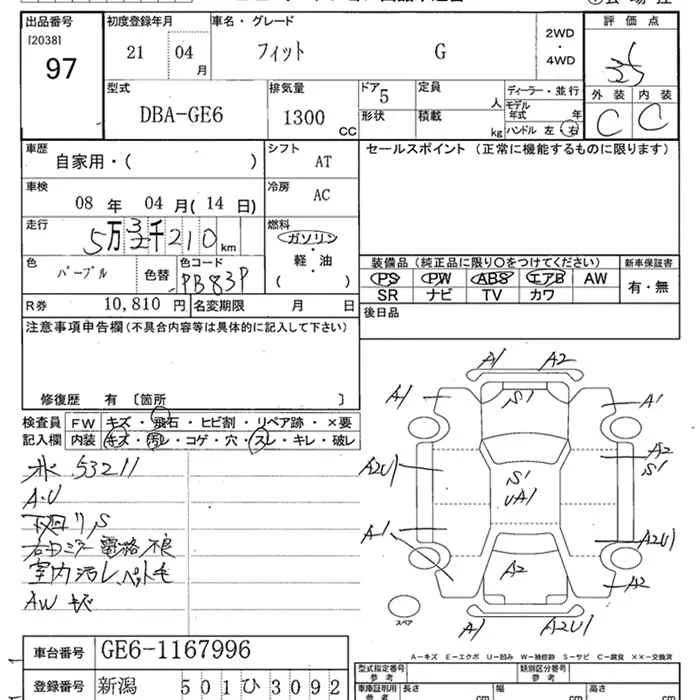 出品番号
[2038]
97
初度登録年月
21 04 月
車名・グレード
フィット G
2WD
・
4WD
評価点
3.5
外装 内装
C C
型式
DBA-GE6
排気量
1300 CC
ドア
5
形状
定員
人
積載
kg
ディーラー・並行
モデル年式 年
ハンドル 左・右
車歴
自家用・( )
シフト
AT
セールスポイント (正常に機能するものに限ります)
車検
08 年 04 月(14 日)
冷房
AC
走行
5万3千210 km
燃料
ガソリン
・
軽・油
( )
色
パープル
色替
色コード
PB83P
装備品 (純正品に限り〇をつけてください)
新車保証書
PS PW ABS エアB AW
SR ナビ TV カワ
有・無
R券 10,810 円
名変期限 月 日
後日品
注意事項申告欄(不具合内容等は具体的に記入して下さい)
修復歴 有 〔箇所 〕
検査員
記入欄
FW キズ・飛石・ヒビ割・リペア跡・×要
内装 キズ・汚レ・コゲ・穴・スレ・キレ・破レ
53211
A・U
下回りS
右ミラー電格不良
室内汚レ、ペット毛
AW キズ
A1 A2
A1 S1 A1
A2U1 S1 UA1 A2 S1
A1 A2U1
A2 A2
A1 A2U1
スペア
A=キズ E=エクボ U=凹み W=補修跡 S=サビ C=腐食 ××=交換済
車台番号 GE6-1167996
登録番号 新潟 501 ひ 3092
型式指定番号
参考
類別区分番号
参考
車庫証明用
参考
長さ cm
幅 cm
高さ cm